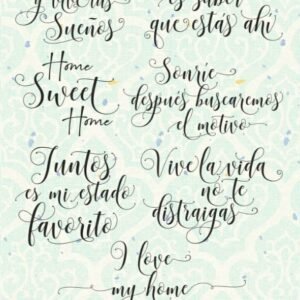 y vivirás
Sueños
es saber
que estás ahí
Home
Sweet
Home
Sonríe
después buscaremos
el motivo
Juntos
es mi estado
favorito
Vive la vida
no te
distraigas
I love
my home